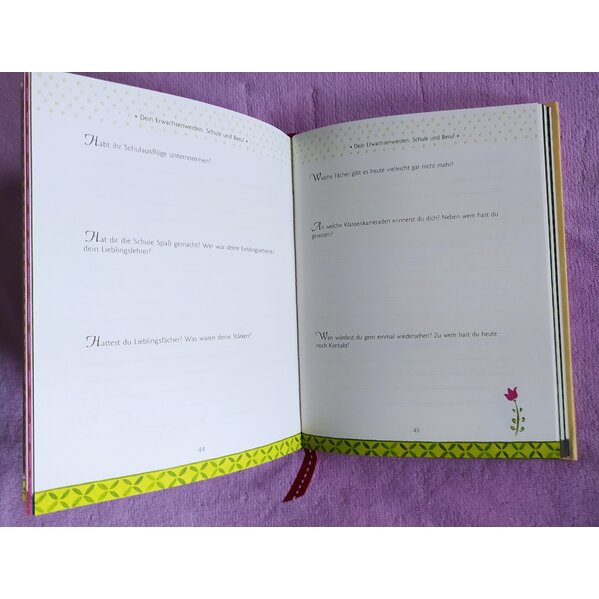 • Dein Erwachsenwerden, Schule und Beruf •
Habt ihr Schulausflüge unternommen?
Hat dir die Schule Spaß gemacht? Wer war deine Lieblingslehrerin/
dein Lieblingslehrer?
Hattest du Lieblingsfächer? Was waren deine Stärken?
44
• Dein Erwachsenwerden, Schule und Beruf •
Welche Fächer gibt es heute vielleicht gar nicht mehr?
An welche Klassenkameraden erinnerst du dich? Neben wem hast du
gesessen?
Wen würdest du gern einmal wiedersehen? Zu wem hast du heute
noch Kontakt?
45